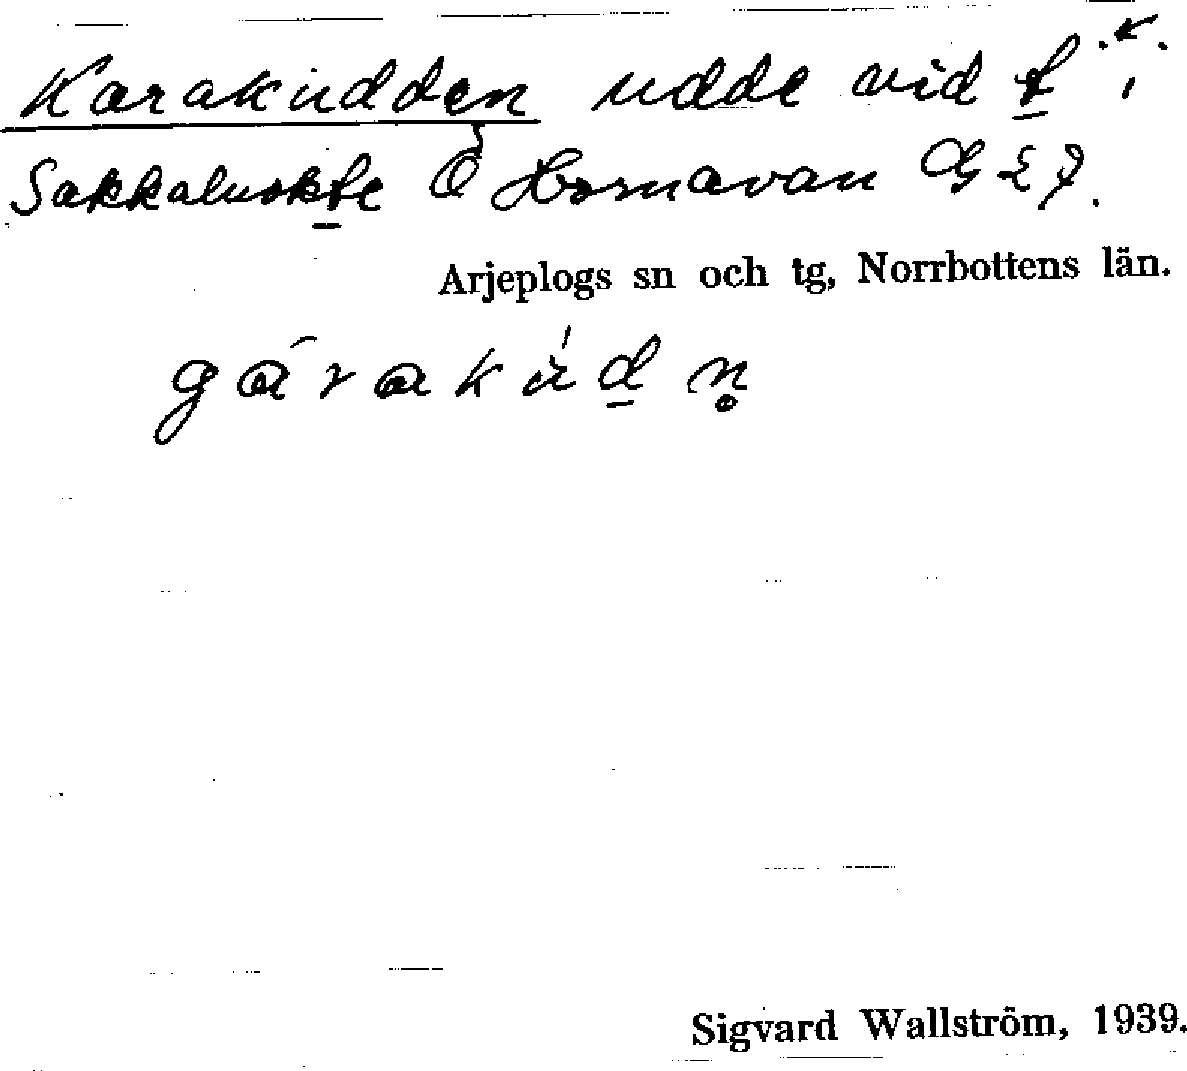 Karakudden udde vid f
Sakkaluokte Ö Hornavan G 27.
Arjeplogs sn och tg, Norrbottens län.
gàrakùdn̥
Sigvard Wallström, 1939.